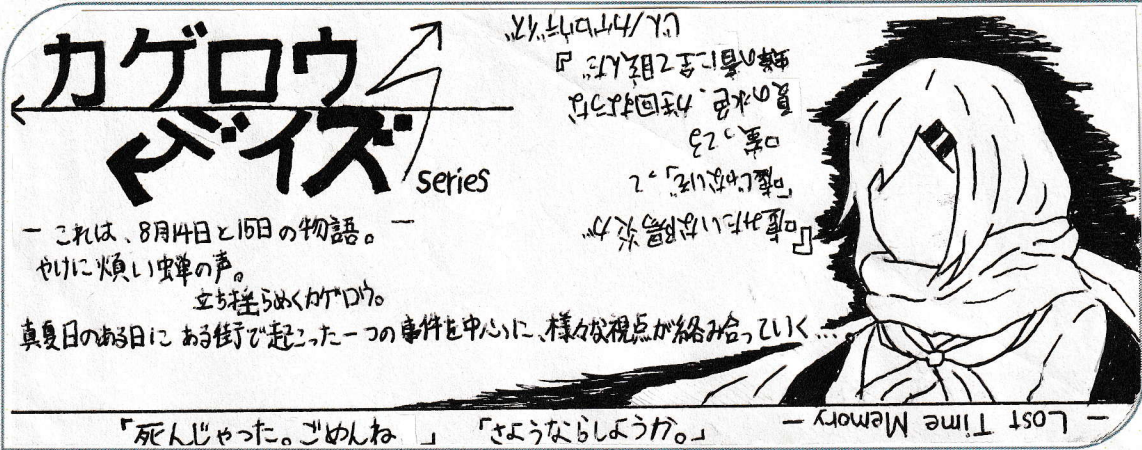 カゲロウ
デイズ
series
― これは、8月14日と15日の物語。 ―
やけに煩い蝉の声。
立ち揺らめくカゲロウ。
真夏日のある日に ある街で起こった一つの事件を中心に、様々な視点が絡み合っていく…。
『嘘みたいな陽炎が
「嘘じゃないぞ」って
嗤ってる
夏の水色、かき回すような
蝉の音に全て眩んだ』
じん/カゲロウデイズ
「死んじゃった。ごめんね」 「さようならしようか。」
― Lost Time Memory ―